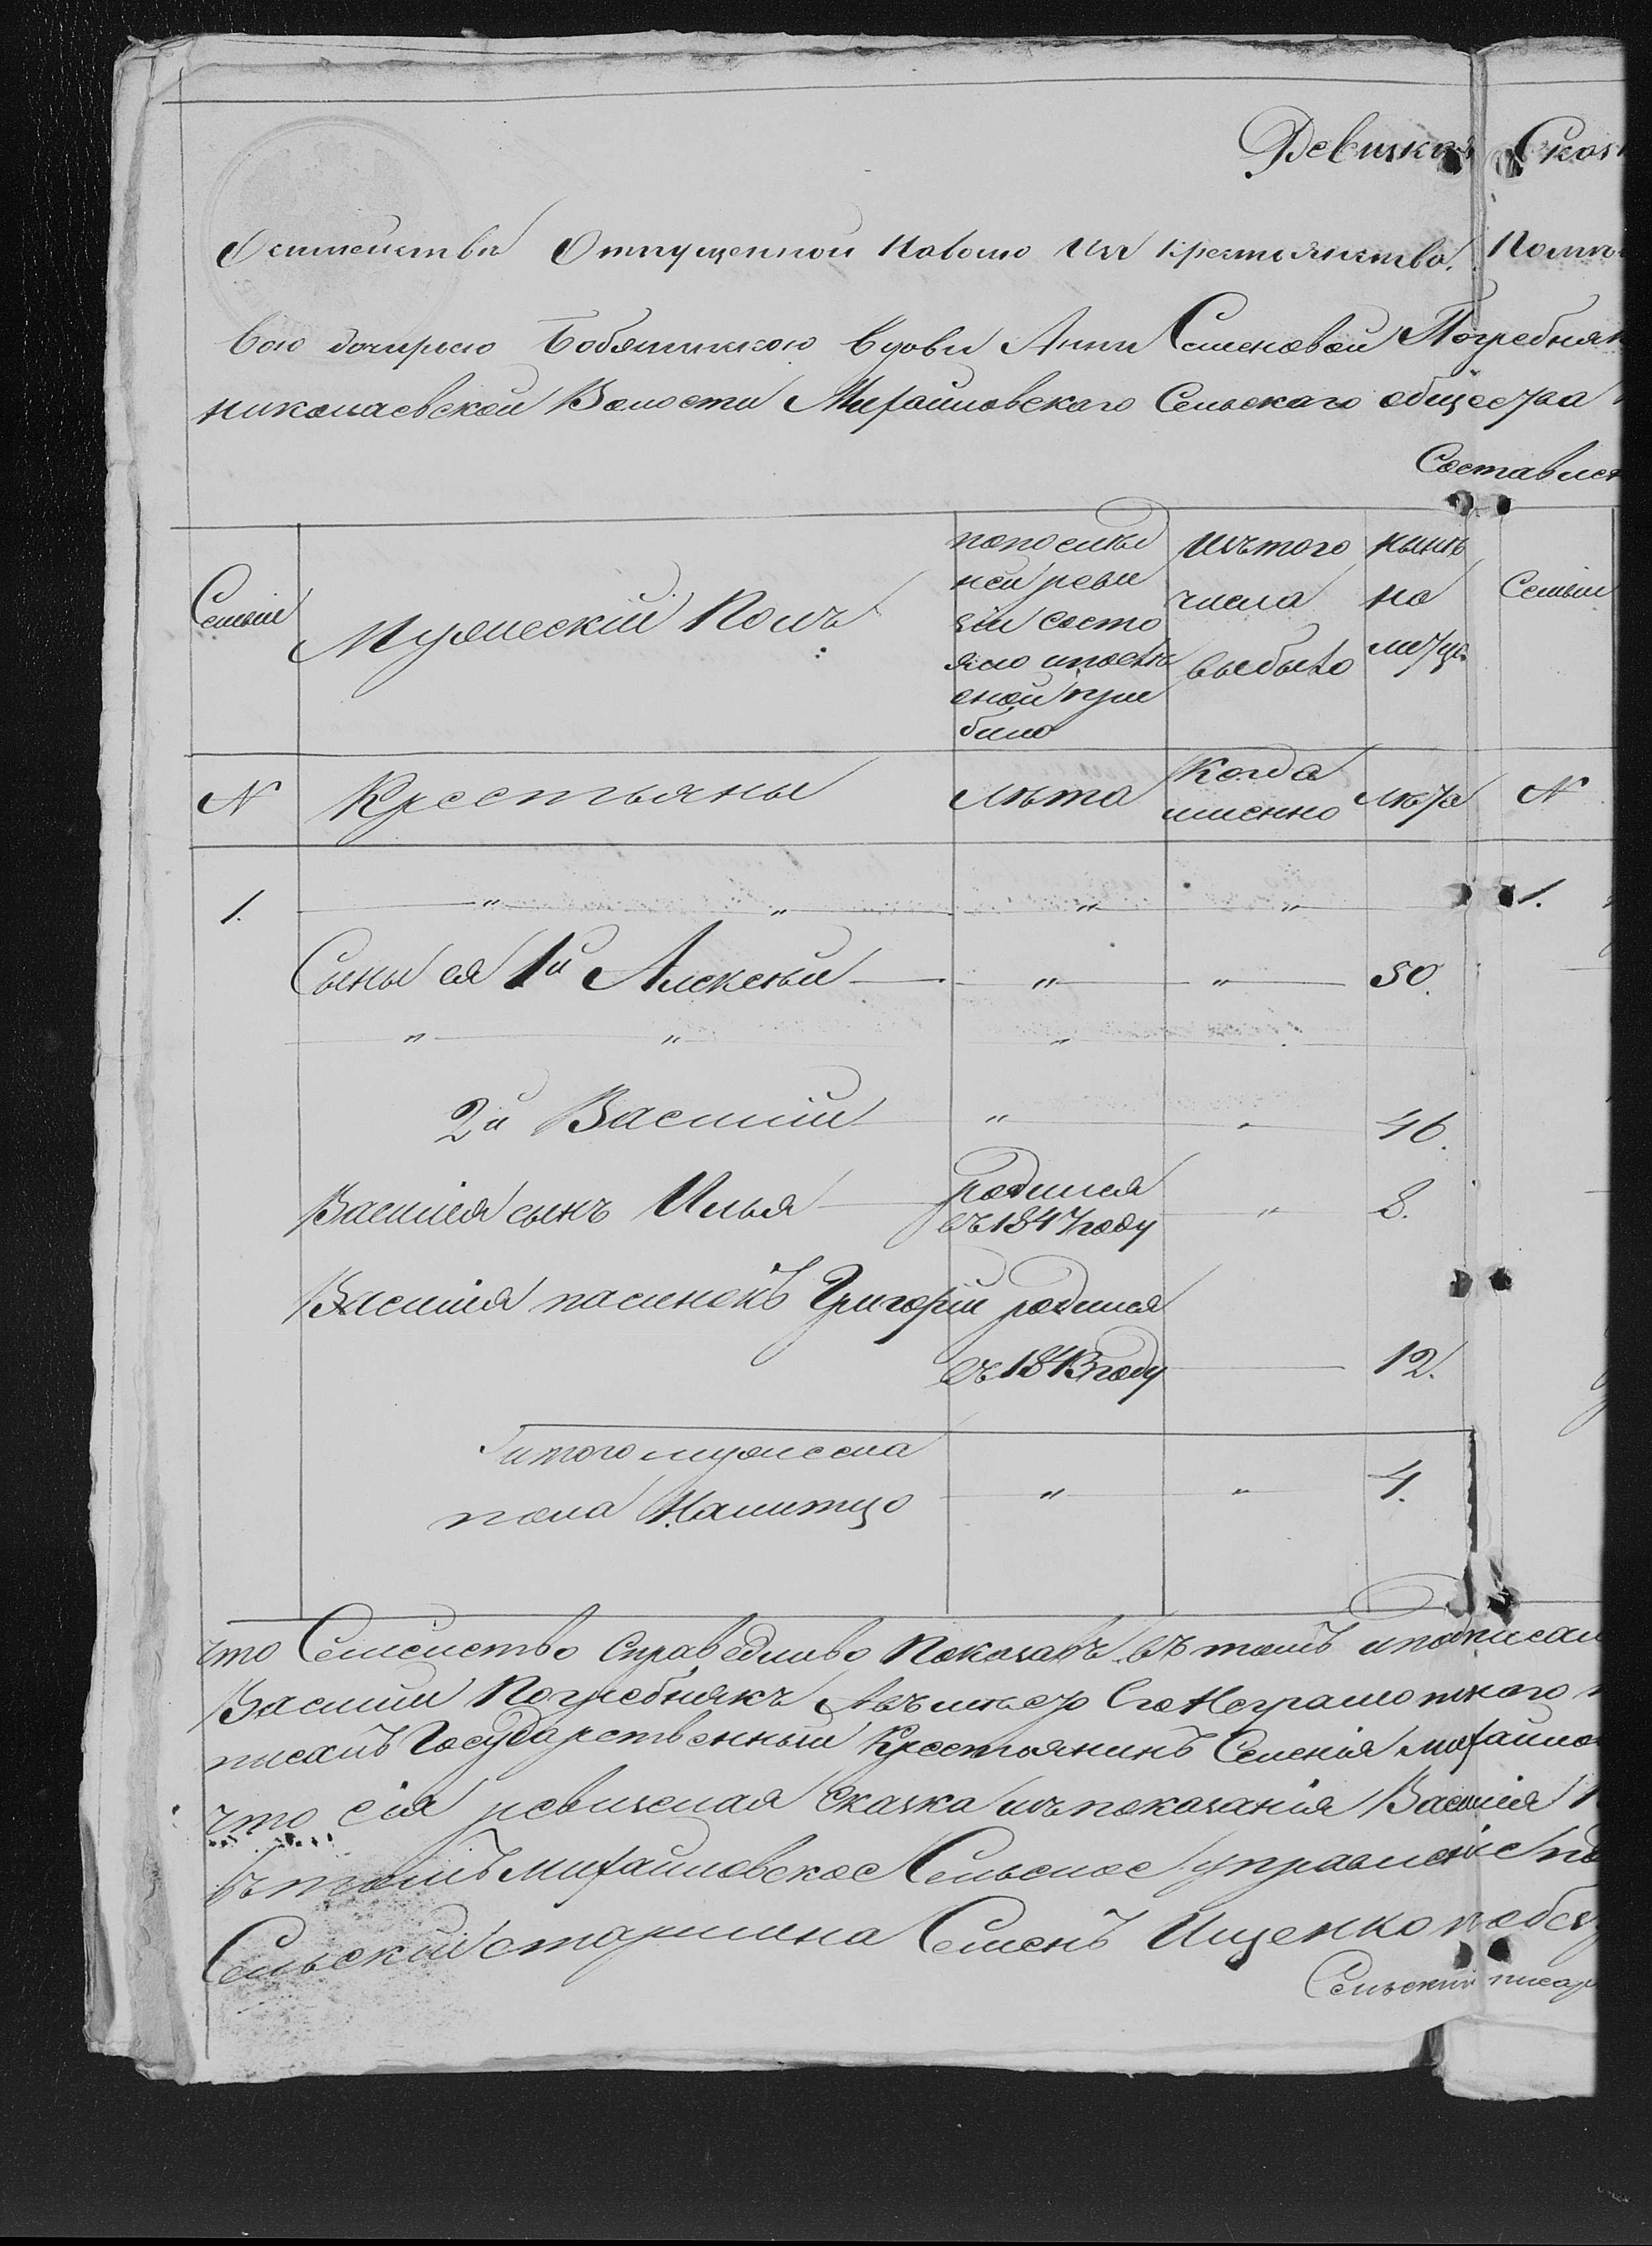 Ревизкая Сказ
О семействе Отпущенной Наволю Изъ крестьянства. Помѣ
вою дочирью Бобяшинскою вдовы Анны Семеновой Погребняк
николаевской Волости Михайловскаго Сельскаго общества
Составлен
Семьи Мужескій Полъ попослѣд ней реви зіи состо яло ипослѣ оной при было Изътого числа выбыло нынѣ на лицо Семьи
N Крестьяны Лѣта Когда именно Лѣта N
1. " " " " 1.
Сыны ея 1й Алексѣй " " 50.
" " "
2й Василій " " 46.
Василія сынъ Илья родился въ 1847 году " 8.
Василія пасинокъ Григорій родился
въ 1843 году 12.
Итого мужеска
пола Налитцо " " 4.
что Семейство Справедливо Показавъ въ томъ иподписал
Василій Погребнякъ Авъместо Его Неграмотного
писалъ Государственный Крестьянинъ Селенія михайло
что сія ревизская Сказка изъ показанія Василія
Въ томъ михайловское Сельское управленіе по
Сельскій старшина Семенъ Ищенко
Сельскій писар